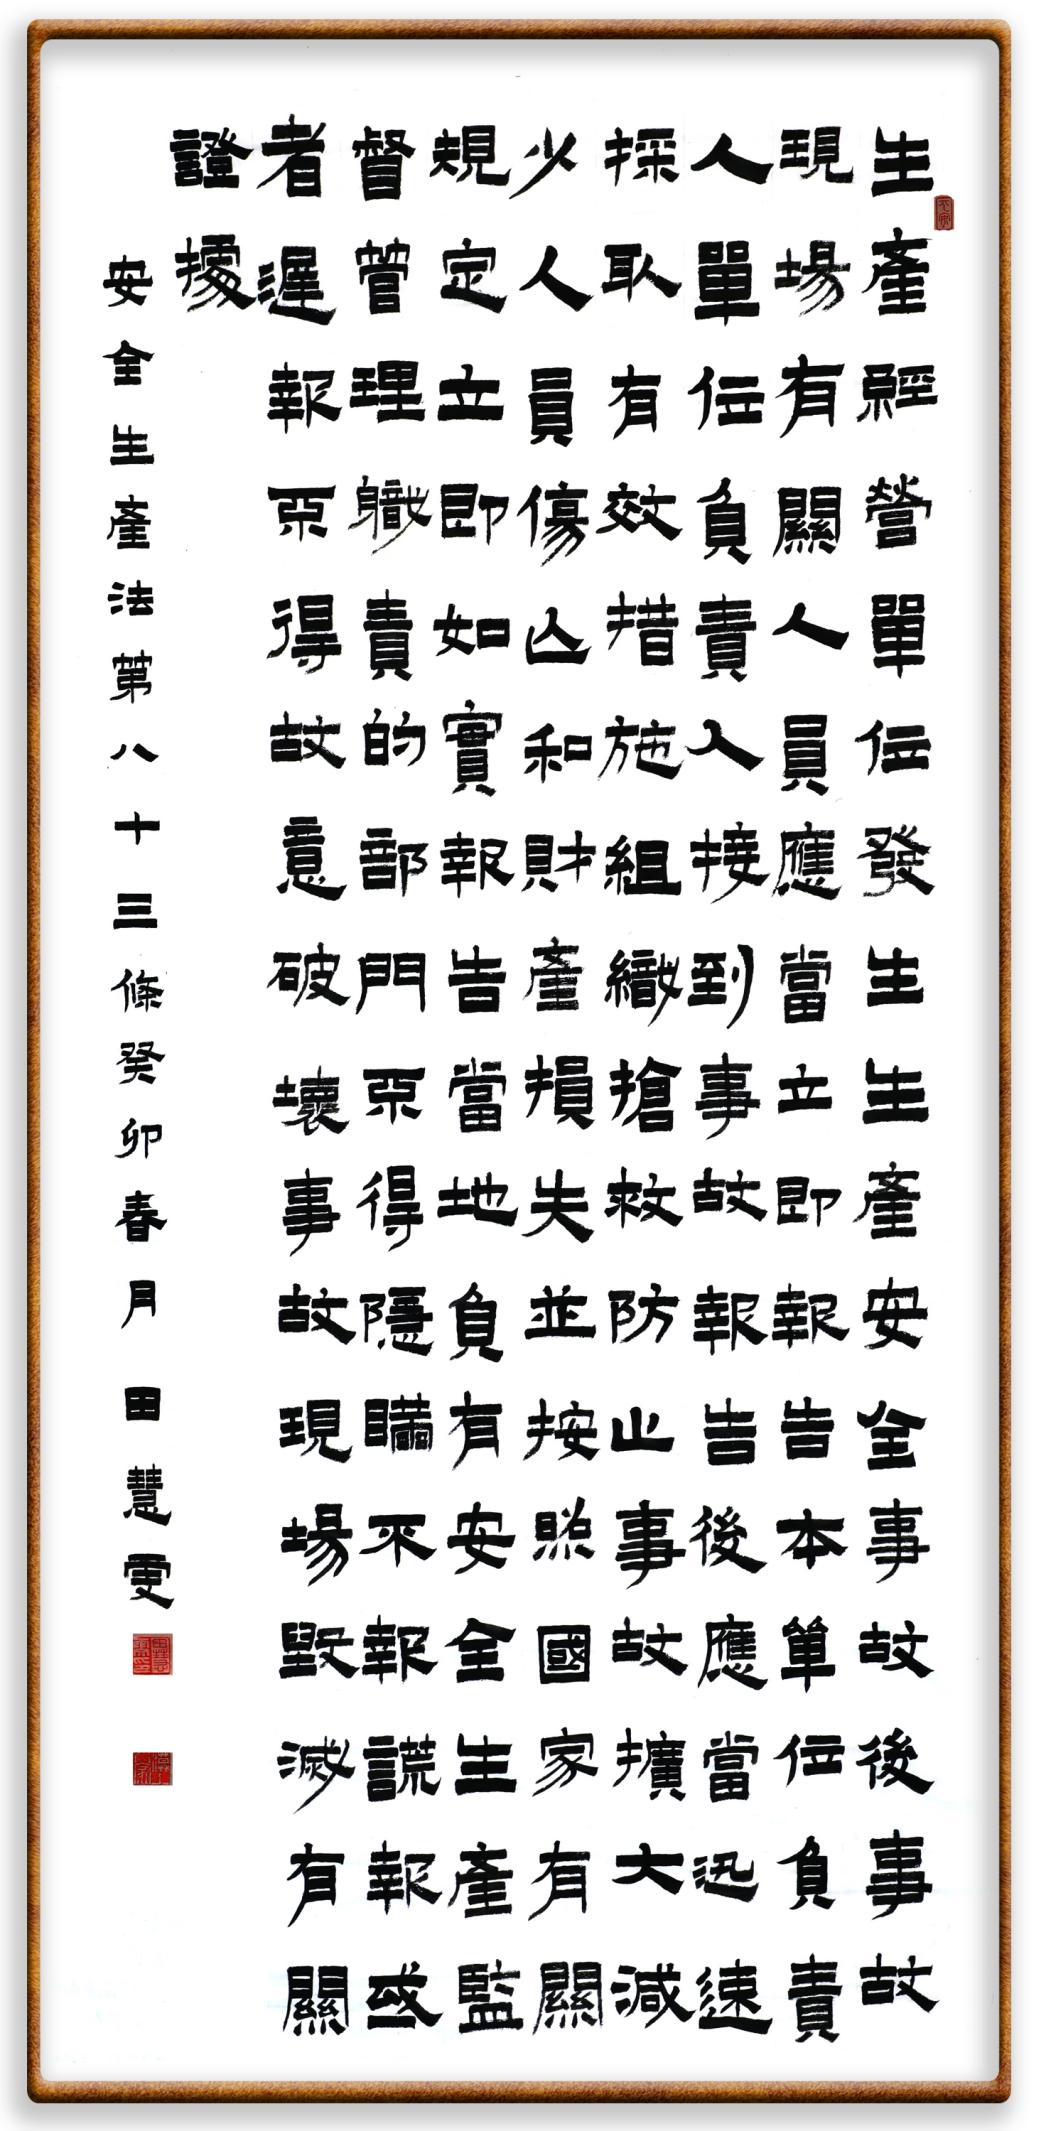 生產經營單位發生生產安全事故後事故
現場有關人員應當立即報告本單位負責
人單位負責人接到事故報告後應當迅速
採取有效措施組織搶救防止事故擴大減
少人員傷亡和財產損失並按照國家有關
規定立即如實報告當地負有安全生產監
督管理職責的部門不得隱瞞不報謊報或
者遲報不得故意破壞事故現場毀滅有關
證據
安全生產法第八十三條癸卯春月田慧雯